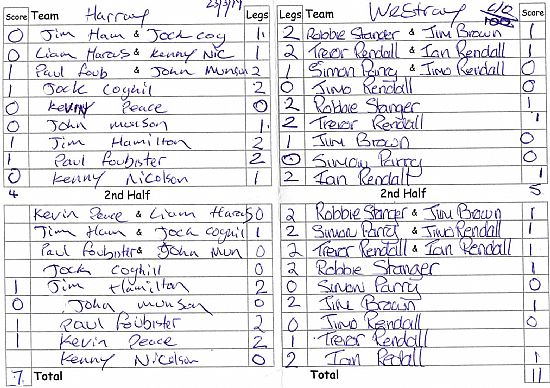 Score Team Harray 23/3/19 Legs
0 Jim Ham & Jock cog 1
0 Liam Harcus & Kenny Nic 1
1 Paul foub & John Munson 2
1 Jock Coghill 2
0 Kenny Peace 0
0 John munson 1
1 Jim Hamilton 2
1 Paul foubister 2
0 Kenny Nicolson 1
4 2nd Half
Kevin Peace & Liam Harcus 0
Jim Ham & Jock Coghil 1
Paul foubister & John Mun 0
Jock Coghill 0
1 Jim Hamilton 2
0 John munson 0
1 Paul foubister 2
1 Kevin Peace 2
Kenny Nicolson 0
7. Total
Legs Team Westray Score
2 Robbie Stanger & Jim Brown 1
2 Trevor Rendall & Ian Rendall 1
1 Simon Parry & Jimo Rendall 0
0 Jimo Rendall 0
2 Robbie Stanger 1
2 Trevor Rendall 1
1 Jim Brown 0
0 Simon Parry 0
2 Ian Rendall 1
2nd Half 5
2 Robbie Stanger & Jim Brown 1
2 Simon Parry & Jimo Rendall 1
2 Trevor Rendall & Ian Rendall 1
2 Robbie Stanger 1
0 Simon Parry 0
2 Jim Brown 1
0 Jimo Rendall 0
1 Trevor Rendall
2 Ian Rendall 1
Total 11